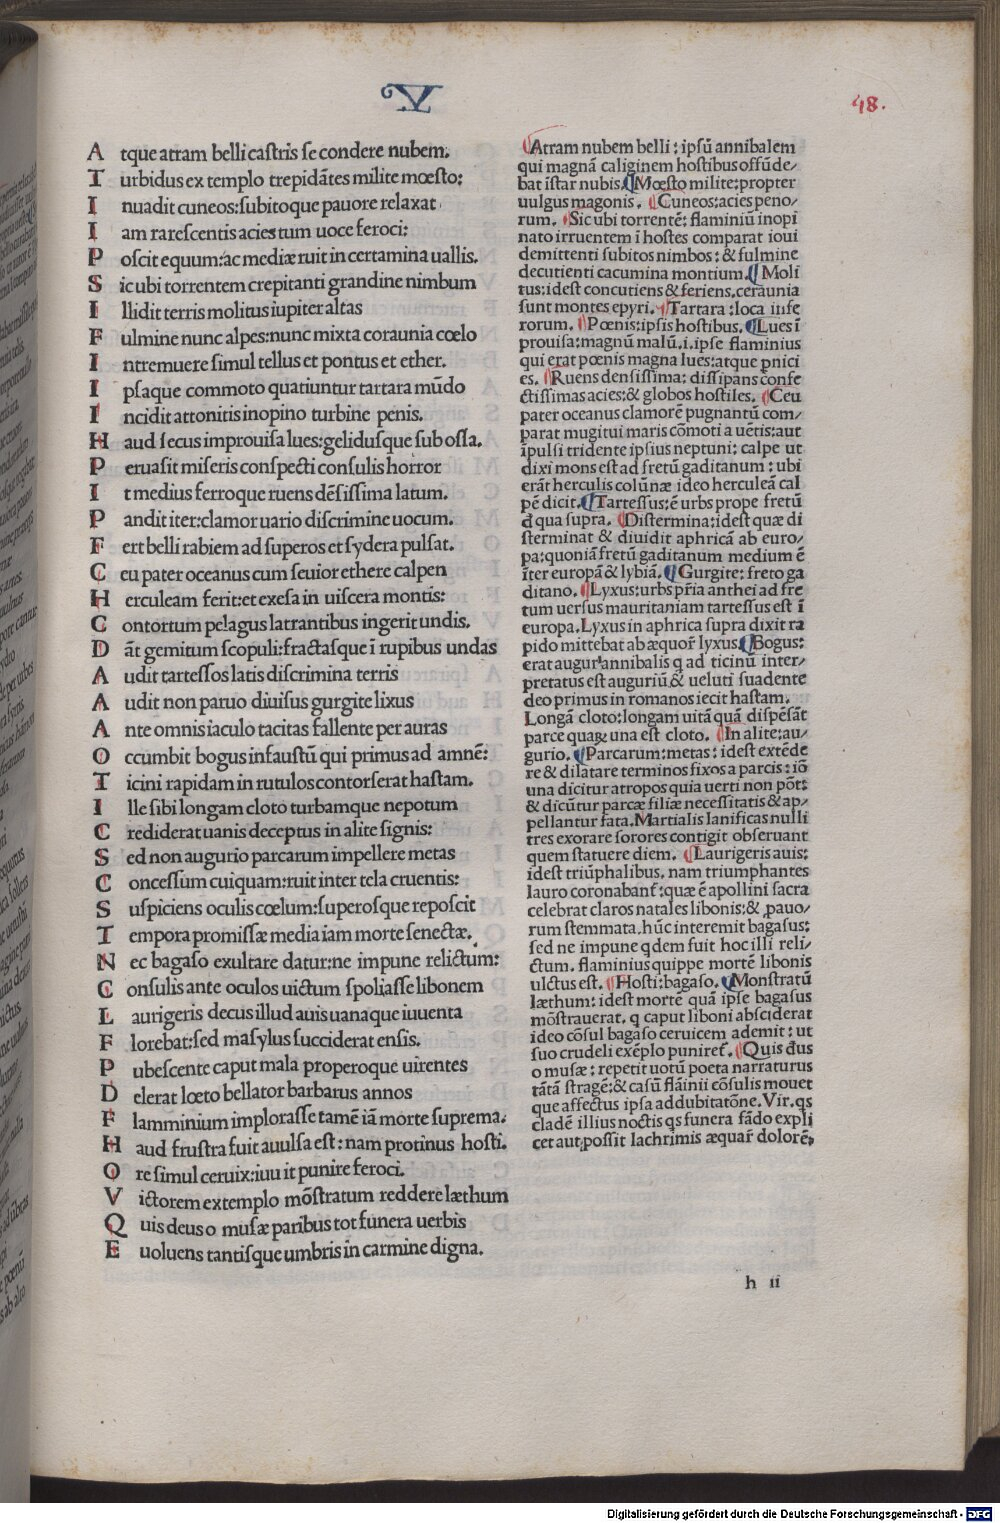 V
48.
Atque atram belli castris se condere nubem.
Turbidus ex templo trepidãtes milite mœsto:
Inuadit cuneos:subitoque pauore relaxat
Iam rarescentis acies tum uoce feroci:
Poscit equum:ac mediæ ruit in certamina uallis.
Sic ubi torrentem crepitanti grandine nimbum
Illidit terris molitus iupiter altas
Fulmine nunc alpes:nunc mixta coraunia cœlo
Intremuere simul tellus et pontus et ether.
Ipsaque commoto quatiuntur tartara mũdo
Incidit attonitis inopino turbine penis.
Haud secus improuisa lues:gelidusque sub ossa.
Peruasit miseris conspecti consulis horror
It medius ferroque ruens dẽsissima latum.
Pandit iter:clamor uario discrimine uocum.
Fert belli rabiem ad superos et sydera pulsat.
Ceu pater oceanus cum seuior ethere calpen
Herculeam ferit:et exesa in uiscera montis:
Contortum pelagus latrantibus ingerit undis.
Dãt gemitum scopuli:fractasque ĩ rupibus undas
Audit tartessos latis discrimina terris
Audit non paruo diuisus gurgite lixus
Ante omnis iaculo tacitas fallente per auras
Occumbit bogus infaustũ qui primus ad amnẽ:
Ticini rapidam in rutulos contorserat hastam.
Ille sibi longam cloto turbamque nepotum
Crediderat uanis deceptus in alite signis:
Sed non augurio parcarum impellere metas
Concessum cuiquam:ruit inter tela cruentis:
Suspiciens oculis cœlum:superosque reposcit
Tempora promissæ media iam morte senectæ.
Nec bagaso exultare datur:ne impune relictum:
Consulis ante oculos uictum spoliasse libonem
Laurigeris decus illud auis uanaque iuuenta
Florebat:sed masylus succiderat ensis.
Pubescente caput mala properoque uirentes
Delerat lœto bellator barbarus annos
Flamminium implorasse tamẽ iã morte suprema.
Haud frustra fuit auulsa est: nam protinus hosti.
Ore simul ceruix:iuuit punire feroci.
Victorem extemplo mõstratum reddere læthum
Quis deus o musæ paribus tot funera uerbis
Euoluens tantisque umbris in carmine digna.
Atram nubem belli: ipsũ annibalem
qui magnã caliginem hostibus offũde/
bat ĩstar nubis. Mœsto milite:propter
uulgus magonis. Cuneos:acies peno/
rum. Sic ubi torrentẽ: flaminiũ inopi
nato irruentem ĩ hostes comparat ioui
demittenti subitos nimbos: & fulmine
decutienti cacumina montium. Moli
tus:idest concutiens & feriens.ceraunia
sunt montes epyri. Tartara:loca infe
rorum. Pœnis:ipsis hostibus. Lues ĩ
prouisa:magnũ malũ.i.ipse flaminius
qui erat pœnis magna lues:atque pnici
es. Ruens densissima: dissipans cõnfe
ctissimas acies:& globos hostiles. Ceu
pater oceanus clamorẽ pugnantũ com/
parat mugitui maris cõmoti a uẽtis:aut
ĩpulsi tridente ipsius neptuni: calpe ut
dixi mons est ad fretũ gaditanum: ubi
erãt herculis colũnæ ideo herculeã cal
pẽ dicit. Tartessus:ẽ urbs prope fretũ
đ qua supra. Distermina:idest quæ di
sterminat & diuidit aphricã ab euro/
pa:quoniã fretũ gaditanum medium ẽ
ĩter europã & lybiã. Gurgite: freto ga
ditano. Lyxus:urbs pr̃ia anthei ad fre
tum uersus mauritaniam tartessus est ĩ
europa.Lyxus in aphrica supra dixit ra
pido mittebat ab æquor̃ lyxus. Bogus:
erat augur annibalis q ad ticinũ inter/
pretatus est auguriũ & ueluti suadente
deo primus in romanos iecit hastam.
Longã cloto:longam uitã quã dispẽsãt
parce quaꝝ una est cloto. In alite:au/
gurio. Parcarum:metas: idest extẽde
re & dilatare terminos fixos a parcis: iõ
una dicitur atropos quia uerti non põt:
& dicũtur parcæ filiæ necessitatis & ap/
pellantur fata.Martialis lanificas nulli
tres exorare sorores contigit obseruant
quem statuere diem. Laurigeris auis:
idest triũphalibus. nam triumphantes
lauro coronabant̃:quæ ẽ apollini sacra
celebrat claros natales libonis:& ,pauo/
rum stemmata.hũc interemit bagasus:
sed ne impune qdem fuit hoc illi reli/
ctum. flaminius quippe mortẽ libonis
ulctus est. Hosti:bagaso. Monstratũ
læthum:idest mortẽ quã ipse bagasus
mõstrauerat. q caput liboni absciderat
ideo cõsul bagaso ceruicem ademit: ut
suo crudeli exẽplo puniret̃. Quis đus
o musæ: repetit uotũ poeta narraturus
tãtã stragẽ:& casũ flãinii cõsulis mouet
que affectus ipsa addubitatõne.Vir.qs
cladẽ illius noctis qs funera fãdo expli
cet aut,possit lachrimis æquar̃ dolorẽs
h ii
Digitalisierung gefördert durch die Deutsche Forschungsgemeinschaft - DFG